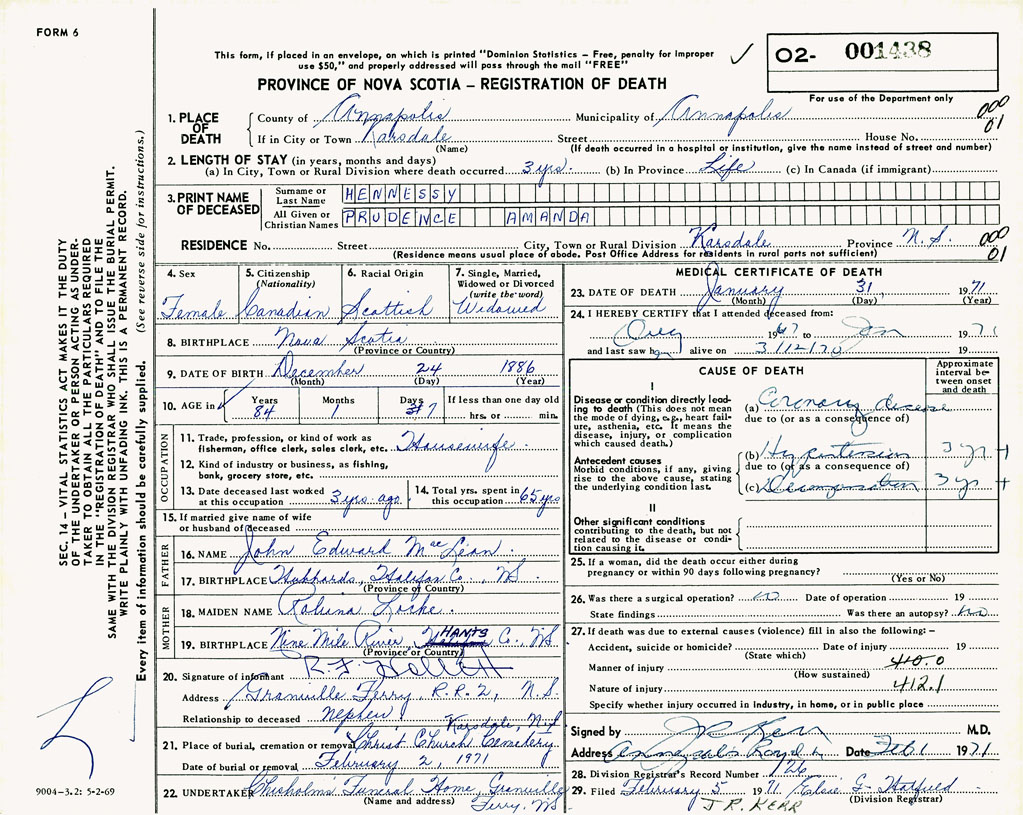 FORM 6
This form, if placed in an envelope, on which is printed "Dominion Statistics – Free, penalty for improper
use $50," and properly addressed will pass through the mail "FREE"
✓
O2- 001438
For use of the Department only
PROVINCE OF NOVA SCOTIA – REGISTRATION OF DEATH
000
01
1. PLACE OF DEATH
County of Annapolis Municipality of Annapolis
If in City or Town Karsdale Street House No.
(Name) (If death occurred in a hospital or institution, give the name instead of street and number)
2. LENGTH OF STAY (in years, months and days)
(a) In City, Town or Rural Division where death occurred 3 yrs. (b) In Province Life (c) In Canada (if immigrant)
3. PRINT NAME OF DECEASED
Surname or Last Name HENNESSY
All Given or Christian Names PRUDENCE AMANDA
RESIDENCE No. Street City, Town or Rural Division Karsdale Province N.S. 000
(Residence means usual place of abode. Post Office Address for residents in rural parts not sufficient) 01
4. Sex
Female
5. Citizenship
(Nationality)
Canadian
6. Racial Origin
Scottish
7. Single, Married,
Widowed or Divorced
(write the word)
Widowed
8. BIRTHPLACE Nova Scotia
(Province or Country)
9. DATE OF BIRTH December 24 1886
(Month) (Day) (Year)
10. AGE in ✓ Years Months Days If less than one day old
84 1 7 hrs. or min.
OCCUPATION
11. Trade, profession, or kind of work as
fisherman, office clerk, sales clerk, etc. Housewife.
12. Kind of industry or business, as fishing,
bank, grocery store, etc.
13. Date deceased last worked
at this occupation 3 yrs. ago.
14. Total yrs. spent in
this occupation 65 yrs
15. If married give name of wife
or husband of deceased
FATHER
16. NAME John Edward MacLean.
17. BIRTHPLACE Hubbards, Halifax Co., NS
(Province or Country)
MOTHER
18. MAIDEN NAME Robina Locke.
19. BIRTHPLACE Nine Mile River, HANTS Co., NS
(Province or Country)
20. Signature of informant
Address Granville Ferry, R.R. 2, N.S.
Relationship to deceased nephew
Karsdale, N.S
21. Place of burial, cremation or removal Christ Church Cemetery.
Date of burial or removal February 2, 1971
22. UNDERTAKER Chisholm's Funeral Home, Granville
(Name and address) Ferry, NS
MEDICAL CERTIFICATE OF DEATH
23. DATE OF DEATH January 31, 1971
(Month) (Day) (Year)
24. I HEREBY CERTIFY that I attended deceased from:
1967 to Jan 1971
and last saw h alive on 31/12/70 19
CAUSE OF DEATH
Approximate
interval be-
tween onset
and death
I
Disease or condition directly lead-
ing to death (This does not mean
the mode of dying, e.g., heart fail-
ure, asthenia, etc. It means the
disease, injury, or complication
which caused death.)
(a) Coronary disease
due to (or as a consequence of)
Antecedent causes
Morbid conditions, if any, giving
rise to the above cause, stating
the underlying condition last.
(b) Hypertension 3 yr +
due to (or as a consequence of)
(c) Decompensation 3 yr +
II
Other significant conditions
contributing to the death, but not
related to the disease or condi-
tion causing it.
25. If a woman, did the death occur either during
pregnancy or within 90 days following pregnancy?
(Yes or No)
26. Was there a surgical operation? no Date of operation 19
State findings Was there an autopsy? no
27. If death was due to external causes (violence) fill in also the following: –
Accident, suicide or homicide? Date of injury 19
(State which)
Manner of injury 410.0
(How sustained)
Nature of injury 412.1
Specify whether injury occurred in industry, in home, or in public place
Signed by J R Kerr M.D.
Address Annapolis Royal Date Feb 1 1971
28. Division Registrar's Record Number 126
29. Filed February 5 1971 Elsie G. Hatfield
(Division Registrar)
J R. KERR
SEC. 14 – VITAL STATISTICS ACT MAKES IT THE DUTY
OF THE UNDERTAKER OR PERSON ACTING AS UNDER-
TAKER TO OBTAIN ALL THE PARTICULARS REQUIRED
IN THE "REGISTRATION OF DEATH" AND TO FILE THE
SAME WITH THE DIVISION REGISTRAR WHO SHALL ISSUE THE BURIAL PERMIT.
WRITE PLAINLY WITH UNFADING INK. THIS IS A PERMANENT RECORD.
Every item of information should be carefully supplied. (See reverse side for instructions.)
9004-3.2: 5-2-69